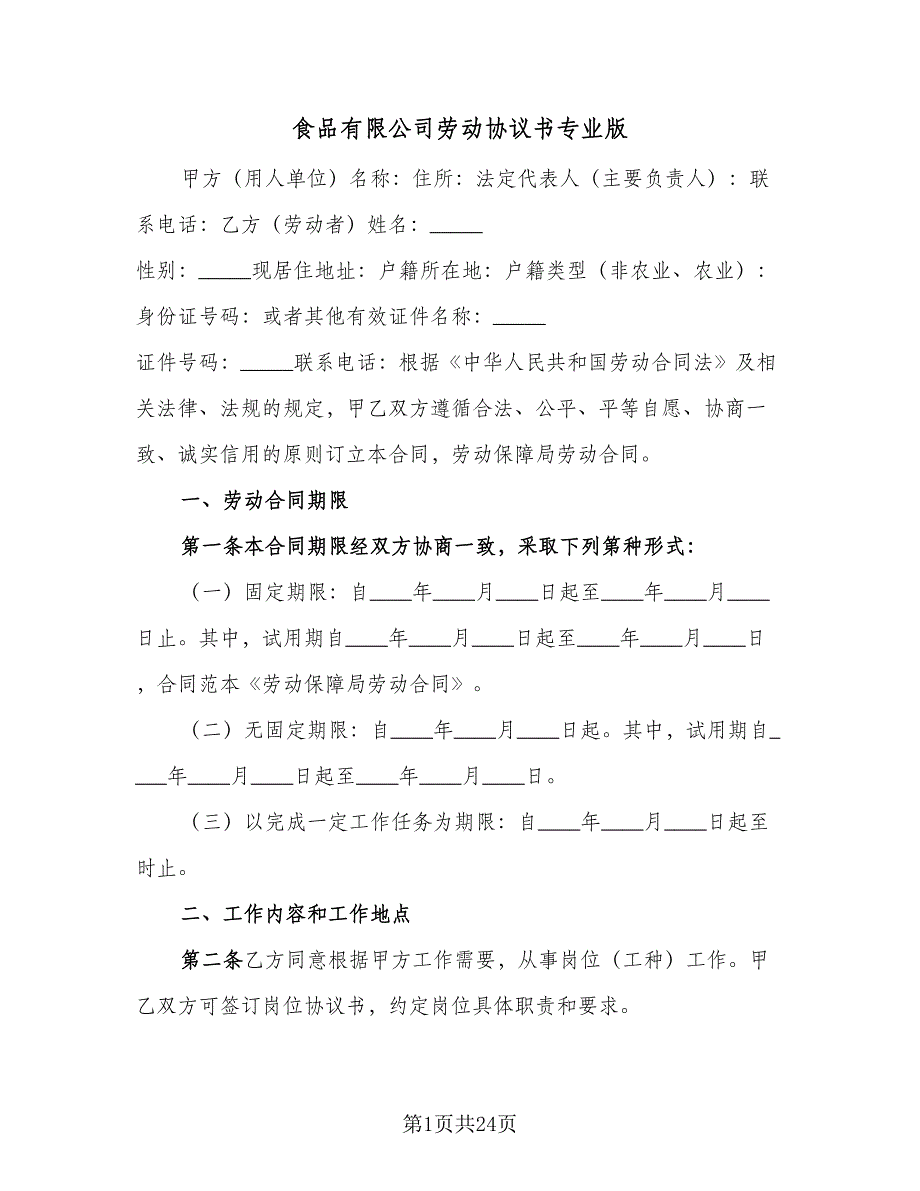 食品有限公司劳动协议书专业版
甲方（用人单位）名称：住所：法定代表人（主要负责人）：联
系电话：乙方（劳动者）姓名：_____
性别：_____现居住地址：户籍所在地：户籍类型（非农业、农业）：
身份证号码：或者其他有效证件名称：_____
证件号码：_____联系电话：根据《中华人民共和国劳动合同法》及相
关法律、法规的规定，甲乙双方遵循合法、公平、平等自愿、协商一
致、诚实信用的原则订立本合同，劳动保障局劳动合同。
一、劳动合同期限
第一条本合同期限经双方协商一致，采取下列第种形式：
（一）固定期限：自____年____月____日起至____年____月____
日止。其中，试用期自____年____月____日起至____年____月____日
，合同范本《劳动保障局劳动合同》。
（二）无固定期限：自____年____月____日起。其中，试用期自_
___年____月____日起至____年____月____日。
（三）以完成一定工作任务为期限：自____年____月____日起至
时止。
二、工作内容和工作地点
第二条乙方同意根据甲方工作需要，从事岗位（工种）工作。甲
乙双方可签订岗位协议书，约定岗位具体职责和要求。
第1页共24页